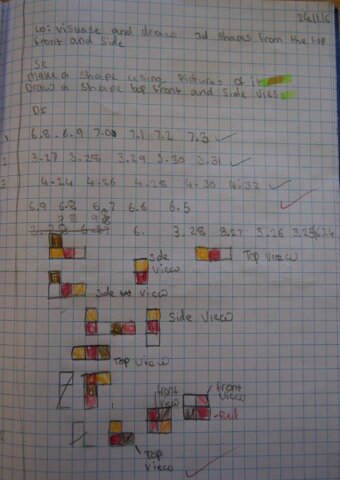 24.11.16
Lo: visuase and draw 3d shapes from the top
front and side
SK
make a shape using pictures of it
Draw a shape top front and side vies
1 6.8 . 6.9 7.00 7.1 7.2 7.3
2 3.27 3.28 3.29 3.30 3.31
3 4.24 4.26 4.28 4.30 4.32
6.9 6.8 6.7 6.6 6.5
6. 3.28 3.27 3.26 3.25
side
view
Top view
side view
Side view
Top view
front
view
front
view
Red
2
Top
view